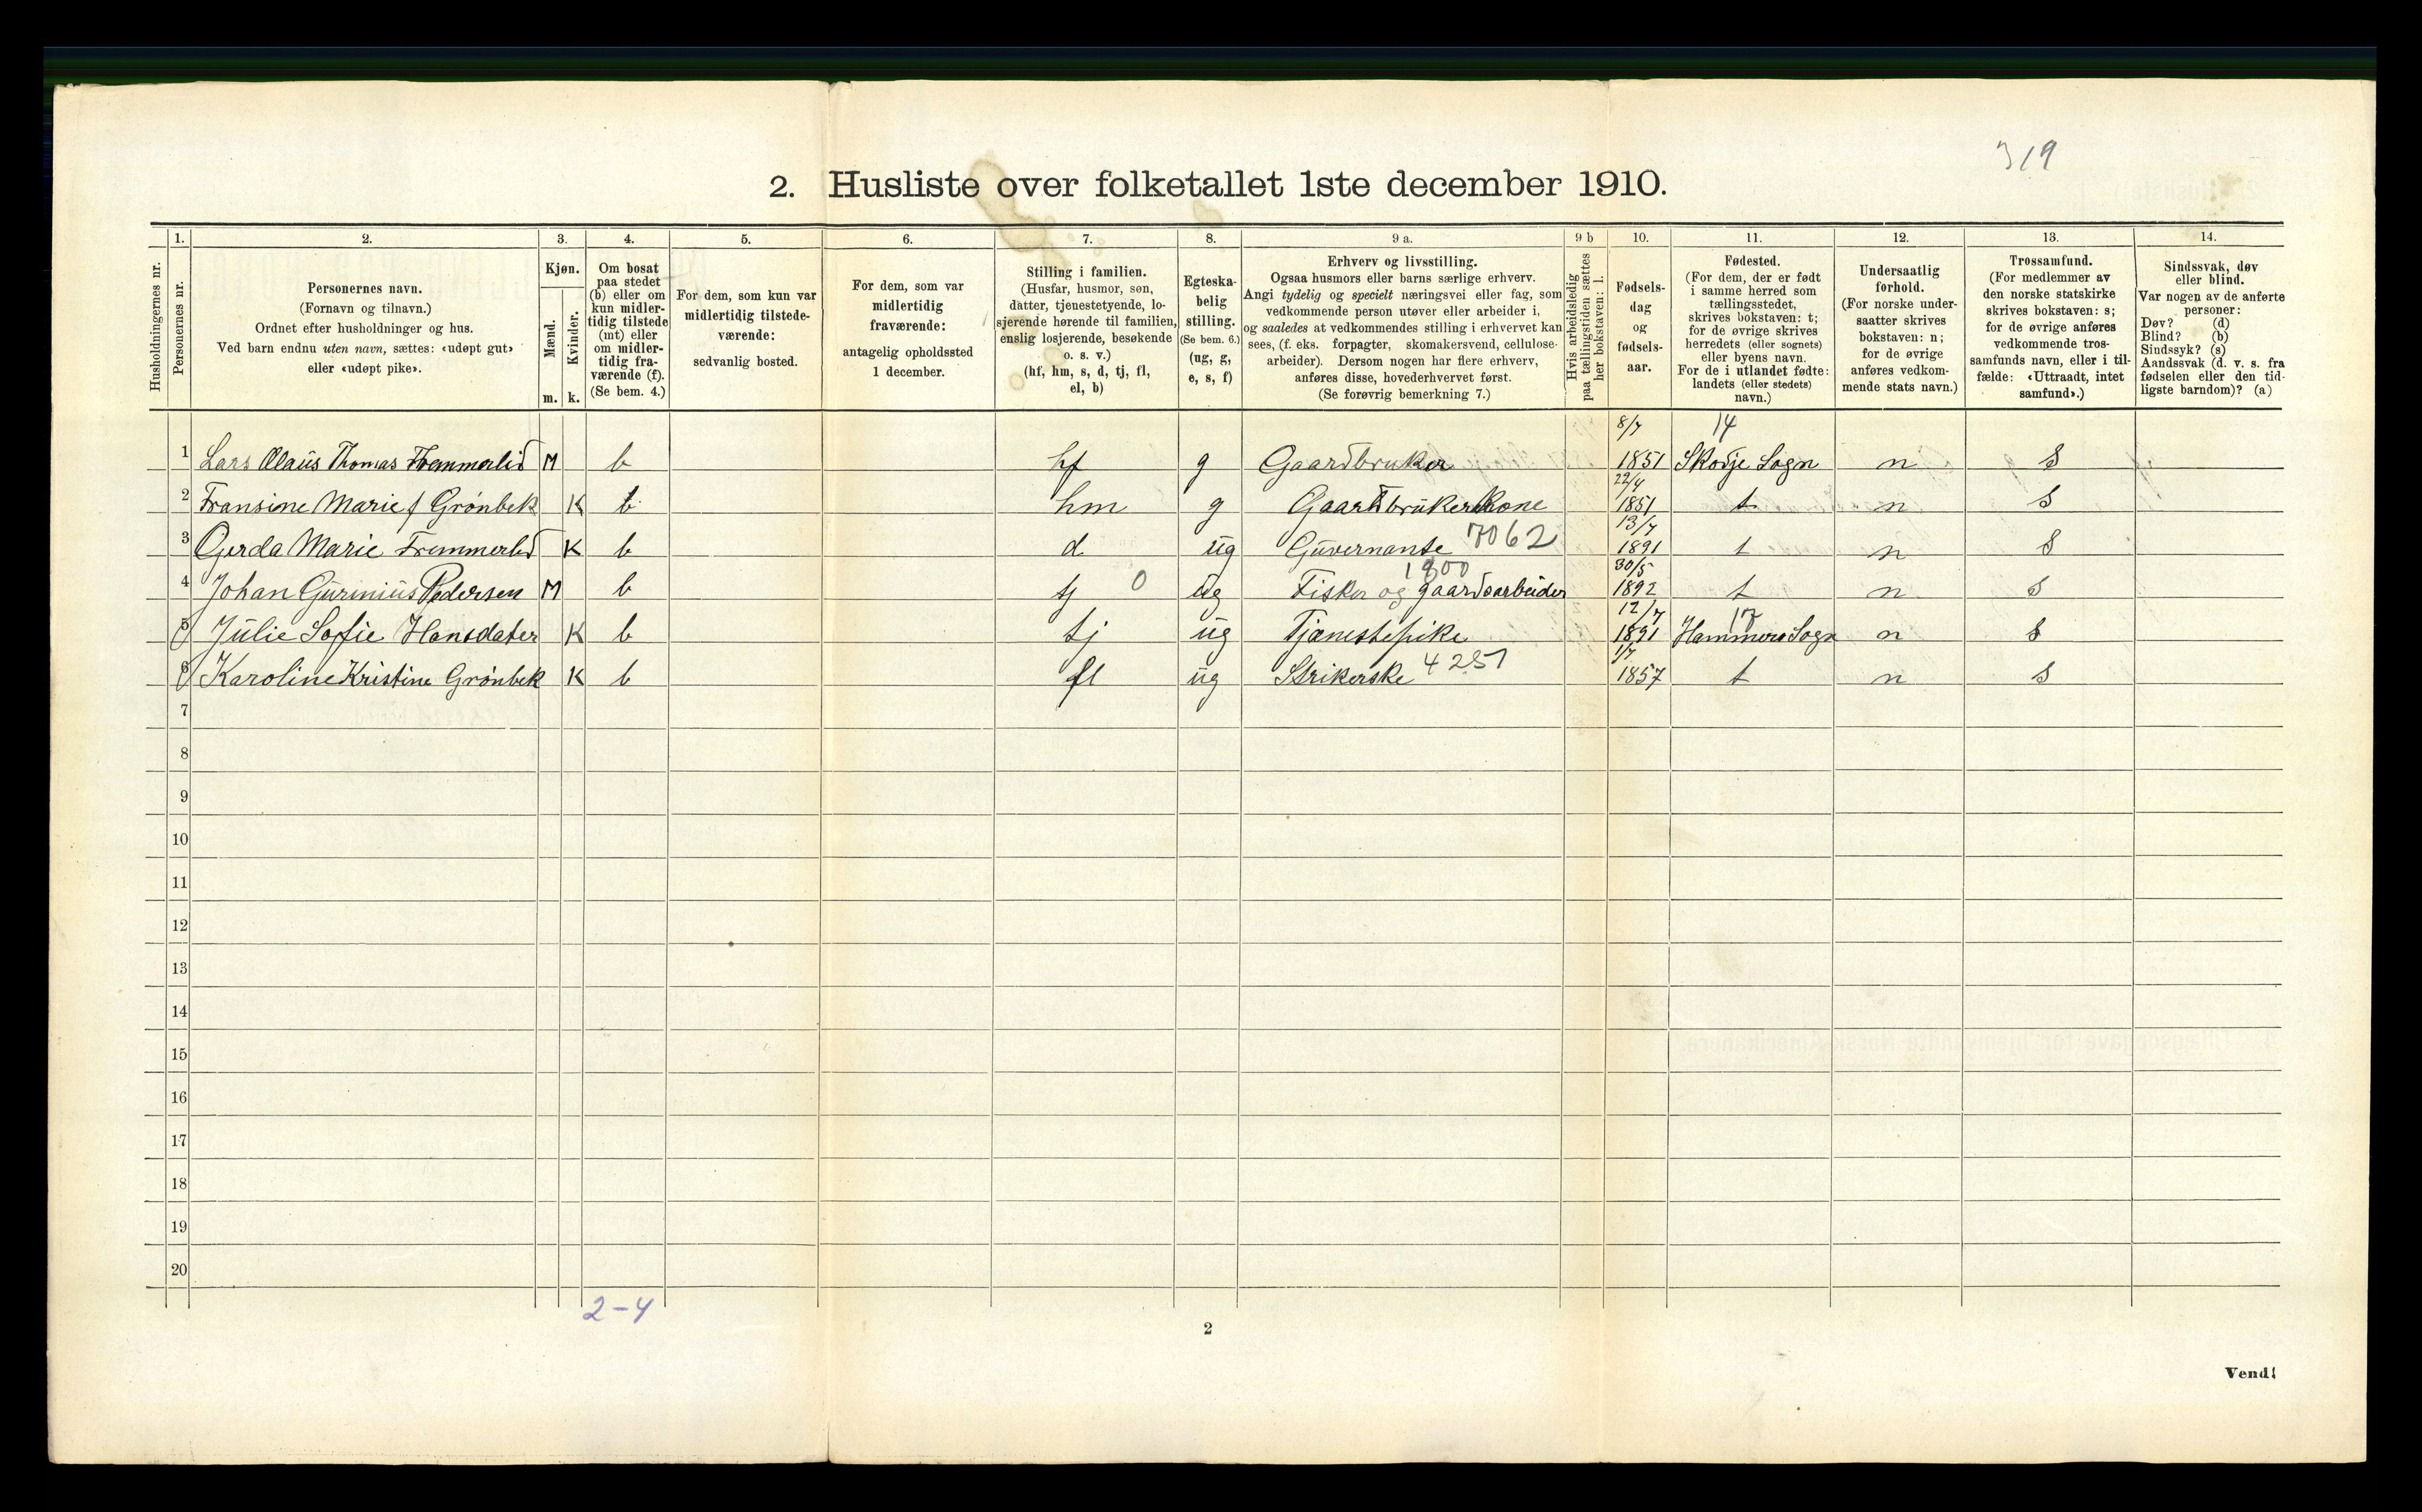 319
2. Husliste over folketallet 1ste december 1910.
1. 2. 3. 4. 5. 6. 7. 8. 9 a. 9 b 10. 11. 12. 13. 14.
Husholdningernes nr.
Personernes nr.
Personernes navn.
(Fornavn og tilnavn.)
Ordnet efter husholdninger og hus.
Ved barn endnu uten navn, sættes: «udøpt gut»
eller «udøpt pike».
Kjøn.
Mænd.
Kvinder.
m. k.
Om bosat
paa stedet
(b) eller om
kun midler-
tidig tilstede
(mt) eller
om midler-
tidig fra-
værende (f).
(Se bem. 4.)
For dem, som kun var
midlertidig tilstede-
værende:
sedvanlig bosted.
For dem, som var
midlertidig
fraværende:
antagelig opholdssted
1 december.
Stilling i familien.
(Husfar, husmor, søn,
datter, tjenestetyende, lo-
sjerende hørende til familien,
enslig losjerende, besøkende
o. s. v.)
(hf, hm, s, d, tj, fl,
el, b)
Egteska-
belig
stilling.
(Se bem. 6.)
(ug, g,
e, s, f)
Erhverv og livsstilling.
Ogsaa husmors eller barns særlige erhverv.
Angi tydelig og specielt næringsvei eller fag, som
vedkommende person utøver eller arbeider i,
og saaledes at vedkommendes stilling i erhvervet kan
sees, (f. eks. forpagter, skomakersvend, cellulose-
arbeider). Dersom nogen har flere erhverv,
anføres disse, hovederhvervet først.
(Se forøvrig bemerkning 7.)
Hvis arbeidsledig
paa tællingstiden sættes
her bokstaven: l.
Fødsels-
dag
og
fødsels-
aar.
Fødested.
(For dem, der er født
i samme herred som
tællingsstedet,
skrives bokstaven: t;
for de øvrige skrives
herredets (eller sognets)
eller byens navn.
For de i utlandet fødte:
landets (eller stedets)
navn.)
Undersaatlig
forhold.
(For norske under-
saatter skrives
bokstaven: n;
for de øvrige
anføres vedkom-
mende stats navn.)
Trossamfund.
(For medlemmer av
den norske statskirke
skrives bokstaven: s;
for de øvrige anføres
vedkommende tros-
samfunds navn, eller i til-
fælde: «Uttraadt, intet
samfund».)
Sindssvak, døv
eller blind.
Var nogen av de anførte
personer:
Døv? (d)
Blind? (b)
Sindssyk? (s)
Aandssvak (d. v. s. fra
fødselen eller den tid-
ligste barndom)? (a)
8/7 14
1 Lars Olaus Thomas Fremmerlid M b hf g Gaardbruker 1851 Skodje Sogn n S
22/4
2 Fransine Marie f Grønbek K b hm g Gaardbrukerkone 1851 t n S
13/7
3 Gerda Marie Fremmerlid K b d ug Guvernante 7062 1891 t n S
1800 30/5
4 Johan Gurinius Pedersen M b tj 0 ug Fisker og gaardsarbeider 1892 t n S
12/7 17
5 Julie Sofie Hansdater K b tj ug Tjænestepike 1891 Hammers Sogn n S
1/7
6 Karoline Kristine Grønbek K b fl ug Strikerske 4251 1857 t n S
7
8
9
10
11
12
13
14
15
16
17
18
19
20
2-4
2
Vend!